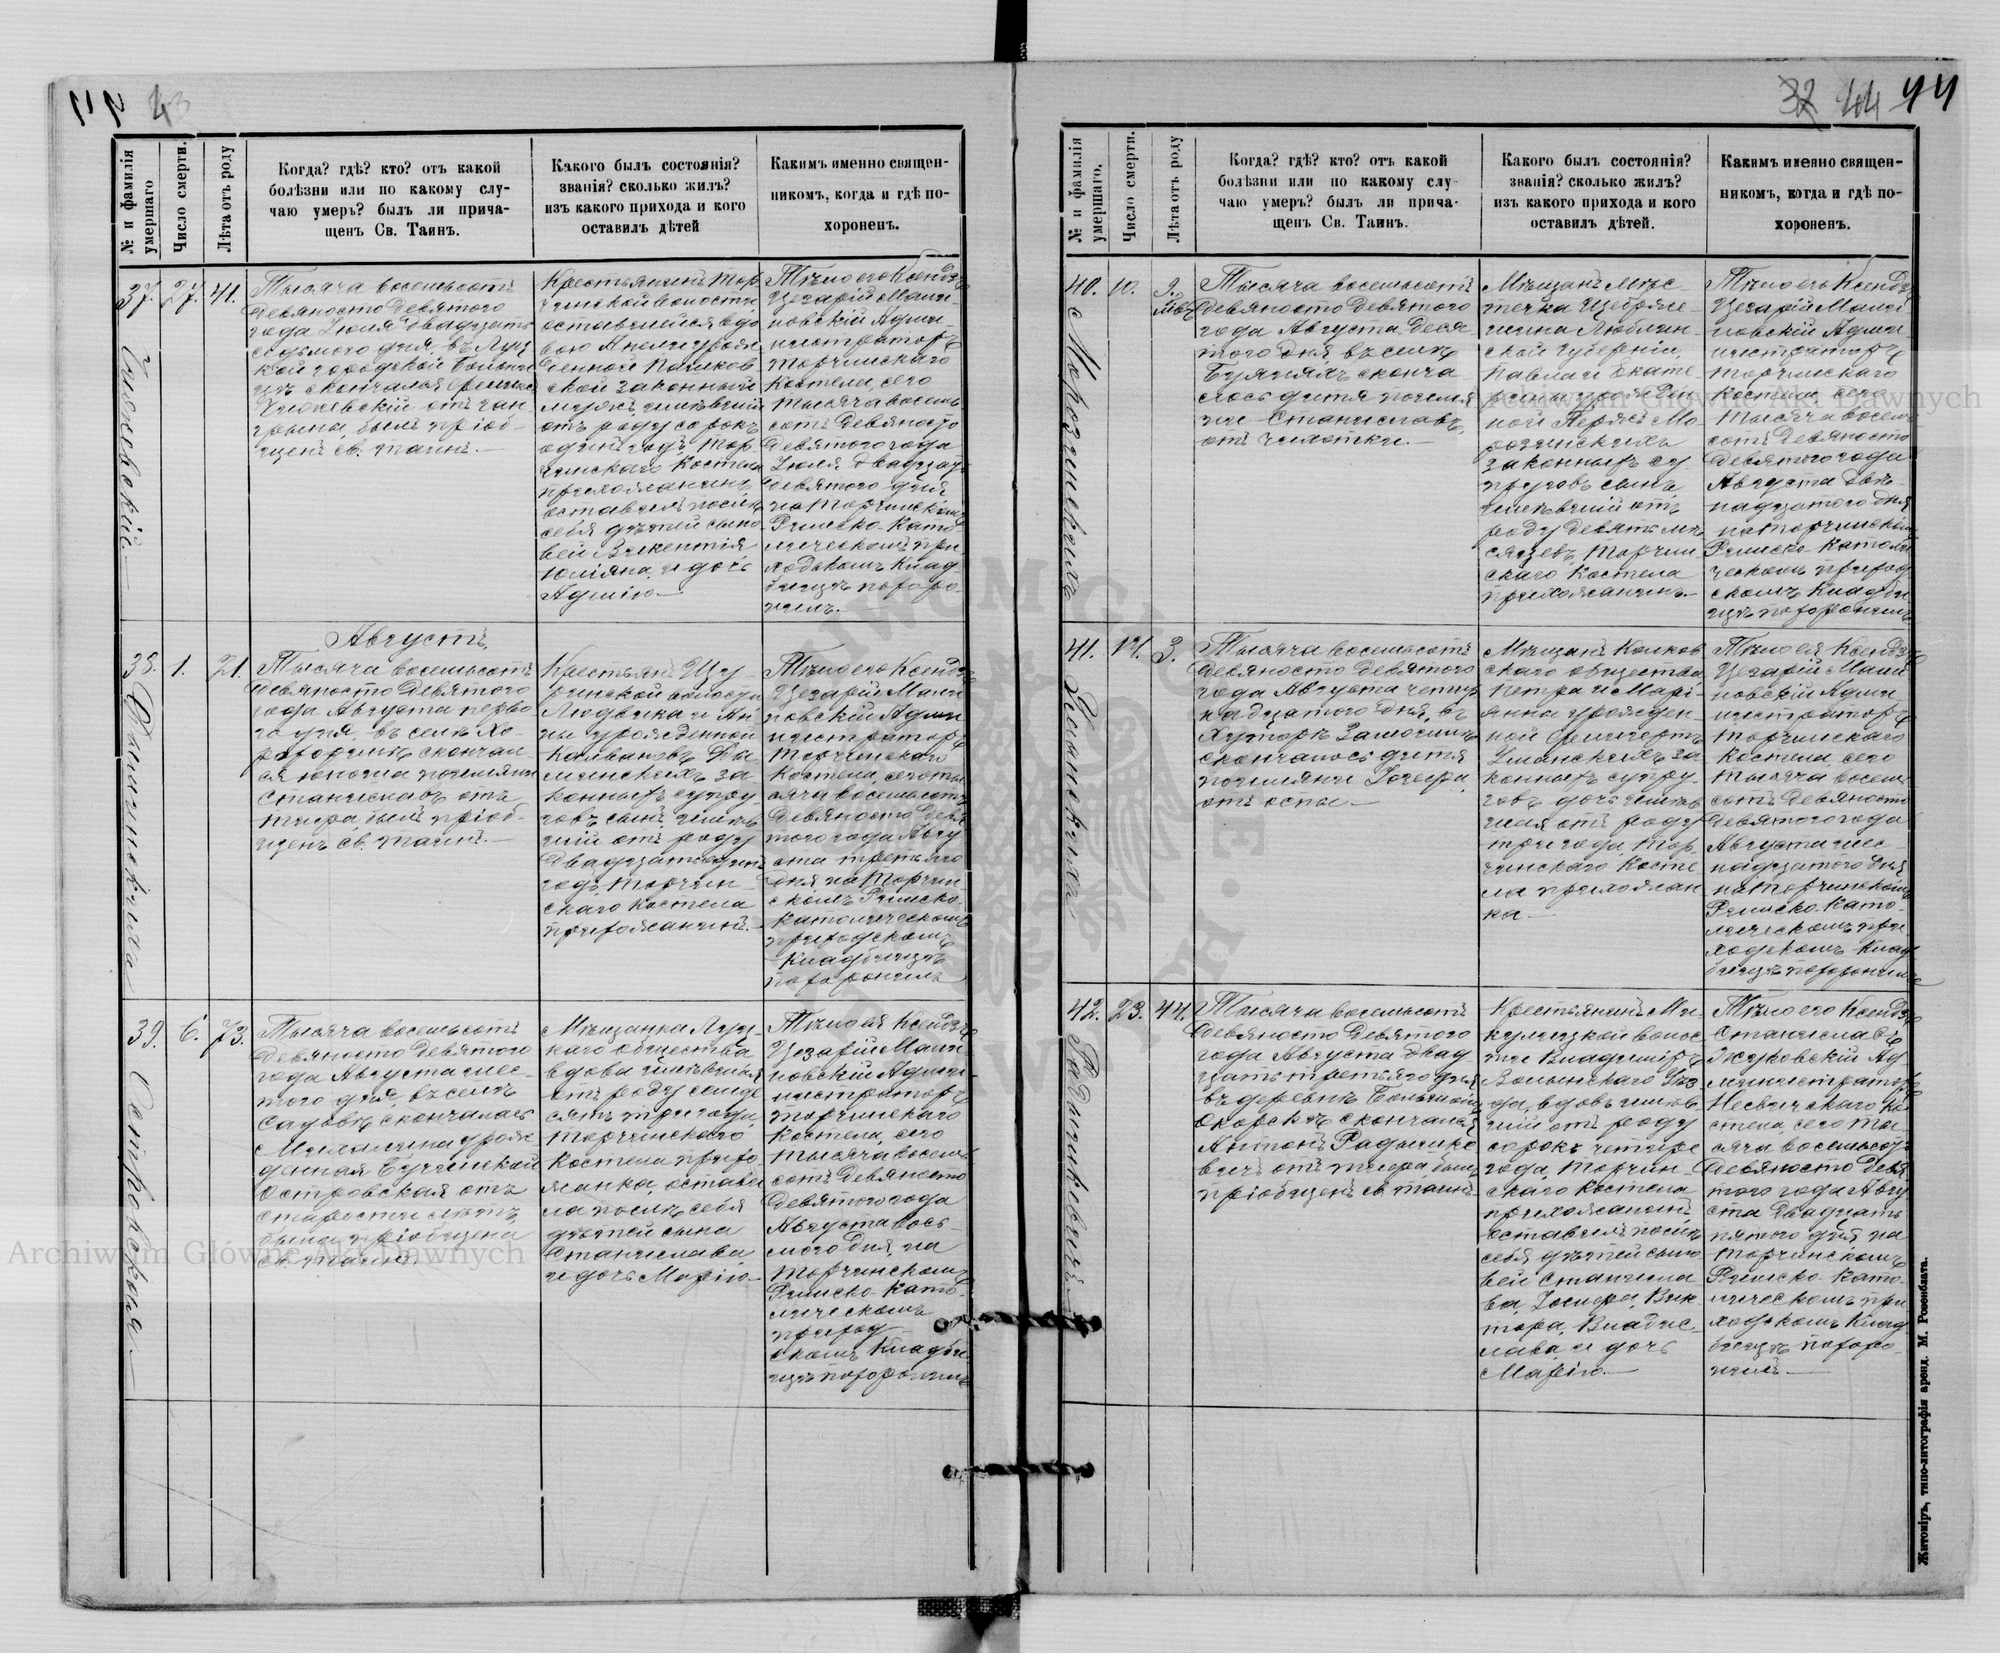 43
№ и фамилія умершаго
Число смерти.
Лѣта отъ роду
Когда? гдѣ? кто? отъ какой
болѣзни или по какому слу-
чаю умеръ? былъ ли прича-
щенъ Св. Таинъ.
Какого былъ состоянія?
званія? сколько жилъ?
изъ какого прихода и кого
оставилъ дѣтей
Какимъ именно священ-
никомъ, когда и гдѣ по-
хороненъ.
37.
27.
41.
Тысяча восемьсотъ
девяносто девятого
года Іюля двадцать
седьмого дня, въ Луц
кой городской Больни
цѣ скончался
отъ ган
грены, былъ пріоб-
щенъ св. таинъ.—
Крестьянинъ Тор
чинской волости
оставшейся вдо
вою урож
денной
ской законный
мужъ, имѣвшій
отъ роду сорокъ
одинъ годъ, Тор
чинскаго Костела
прихожанинъ,
оставилъ послѣ
себя дѣтей сыно
вей Викентія
Юліяна, и дочь
Тѣло его Ксендзъ
Цезарій Мали
новскій Админи
нистраторъ
Торчинскаго
Костела, сего
тысяча восемь
сотъ девяносто
девятого года
Іюля двадцать
девятого дня
на Торчинскомъ
Римско-Като
лическомъ при
ходскомъ Клад
бищѣ похоро
нилъ.
Августъ
38.
1.
21.
Тысяча восемьсотъ
девяносто девятого
года Августа перво
го дня, въ селѣ Хо
скончал
ся юноша по имени
Станиславъ отъ
тифа, былъ пріоб-
щенъ св. таинъ.—
Крестьянъ Щу
ринской волости
Людвика и Ан
ны урожденной
за
конныхъ супру
говъ сынъ, имѣв
шій отъ роду
двадцать одинъ
годъ, Торчин
скаго Костела
прихожанинъ.—
Тѣло его Ксендзъ
Цезарій Мали
новскій Админи
нистраторъ
Торчинскаго
Костела, сего ты
сяча восемьсотъ
девяносто девя
того года Авгу
ста третьяго
дня, на Торчин
скомъ Римско
Католическомъ
приходскомъ
Кладбищѣ
похоронилъ
39.
6.
73.
Островская
Тысяча восемьсотъ
девяносто девятого
года Августа шес-
того дня, въ селѣ
Садовъ скончалась
урож
денная
Островская отъ
старости лѣтъ,
была пріобщена
св. таинъ.
Мѣщанка Луц
каго общества
вдова имѣвшая
отъ роду семьде
сятъ три года,
Торчинскаго
Костела прихо
жанка, остави
ла послѣ себя
дѣтей сына
Станислава
и дочь Марію.—
Тѣло ея Ксендзъ
Цезарій Мали
новскій Админи
нистраторъ
Торчинскаго
Костела, сего
тысяча восемь
сотъ девяносто
девятого года
Августа вось-
мого дня, на
Торчинскомъ
Римско-Като-
лическомъ
приход
скомъ Кладби
щѣ похоронилъ
32 44 44
№ и фамилія умершаго.
Число смерти.
Лѣта отъ роду
Когда? гдѣ? кто? отъ какой
болѣзни или по какому слу-
чаю умеръ? былъ ли прича-
щенъ Св. Таинъ.
Какого былъ состоянія?
званія? сколько жилъ?
изъ какого прихода и кого
оставилъ дѣтей.
Какимъ именно священ-
никомъ, когда и гдѣ по-
хороненъ.
40.
10.
Тысяча восемьсотъ
девяносто девятого
года Августа деся
того дня, въ селѣ
сконча
лось дитя по име
ни Станиславъ,
отъ чахотки.—
Мѣщанъ мѣс
течка Щебрже
шина Люблин
ской Губерніи,
Павла и Екате
рины урожден
ной
законныхъ су
пруговъ сынъ
имѣвшій отъ
роду девять мѣ
сяцевъ, Торчин
скаго Костела
прихожанинъ.—
Тѣло его Ксендзъ
Цезарій Мали
новскій Админи
нистраторъ
Торчинскаго
Костела, сего
тысяча восемь
сотъ девяносто
девятого года
Августа двѣ
надцатого дня
на Торчинскомъ
Римско-Католи
ческомъ приход
скомъ Кладби
щѣ похоронилъ
41.
14.
3.
Тысяча восемьсотъ
девяносто девятого
года Августа четыр
надцатого дня, въ
скончалось дитя
по имени Іозефа,
отъ оспы.—
Мѣщанъ Колков
скаго общества
Петра и Марі
янны урожден
ной
за
конныхъ супру
говъ дочь имѣв
шая отъ роду
три года, Тор
чинскаго Косте
ла прихожан
ка.—
Тѣло ея Ксендзъ
Цезарій Мали
новскій Админи
нистраторъ
Торчинскаго
Костела, сего
тысяча восемь
сотъ девяносто
девятого года
Августа шес-
надцатого дня
на Торчинскомъ
Римско-Като-
лическомъ при
ходскомъ Клад
бищѣ похоронилъ
42.
23.
44.
Тысяча восемьсотъ
девяносто девятого
года Августа двад
цать третьяго дня
въ деревнѣ
скончался
Антонъ
отъ тифа, былъ
пріобщенъ св. таинъ
Крестьянинъ Ми
кулицкой волос
ти Владиміръ
Волынскаго Уѣз
да, вдовъ имѣв
шій отъ роду
сорокъ четыре
года, Торчин
скаго Костела
прихожанинъ,
оставилъ послѣ
себя дѣтей сыно
вей Станисла
ва, Іосифа, Вик
тора, Владис
лава и дочь
Марію.—
Тѣло его Ксендзъ
Станиславъ
Жуковскій Ад
министраторъ
Несвичскаго Ко
стела, сего ты
сяча восемьсотъ
девяносто девя
того года Авгу
ста двадцать
пятого дня на
Торчинскомъ
Римско-Като-
лическомъ при
ходскомъ Клад
бищѣ похоро
нилъ.—
Житоміръ, типо-литографія аренд. М. Розенблата.
Archiwum Główne Akt Dawnych
Archiwum Główne Akt Dawnych